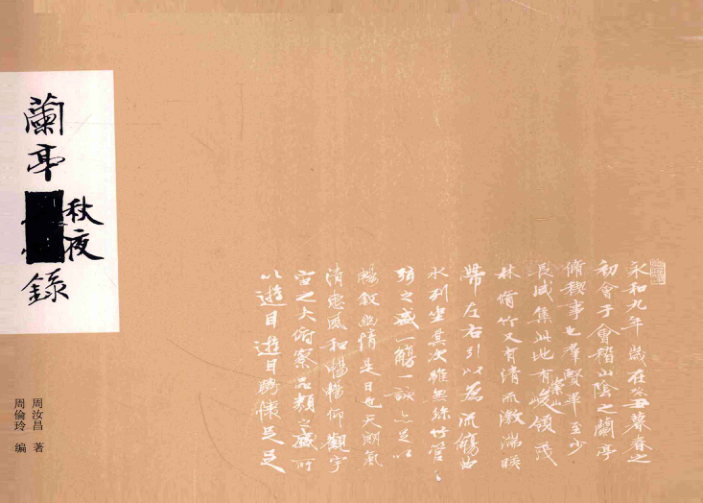 蘭亭秋夜錄
周汝昌 著
周倫玲 編
永和九年歲在癸丑暮春之
初會于會稽山陰之蘭亭
脩稧事也羣賢畢至少
長咸集此地有崇山峻領茂
林脩竹又有清流激湍暎
帶左右引以為流觴曲
水列坐其次雖無絲竹管
弦之盛一觴一詠亦足以
暢敘幽情是日也天朗氣
清惠風和暢仰觀宇
宙之大俯察品類之盛所
以遊目遊目騁懷足足